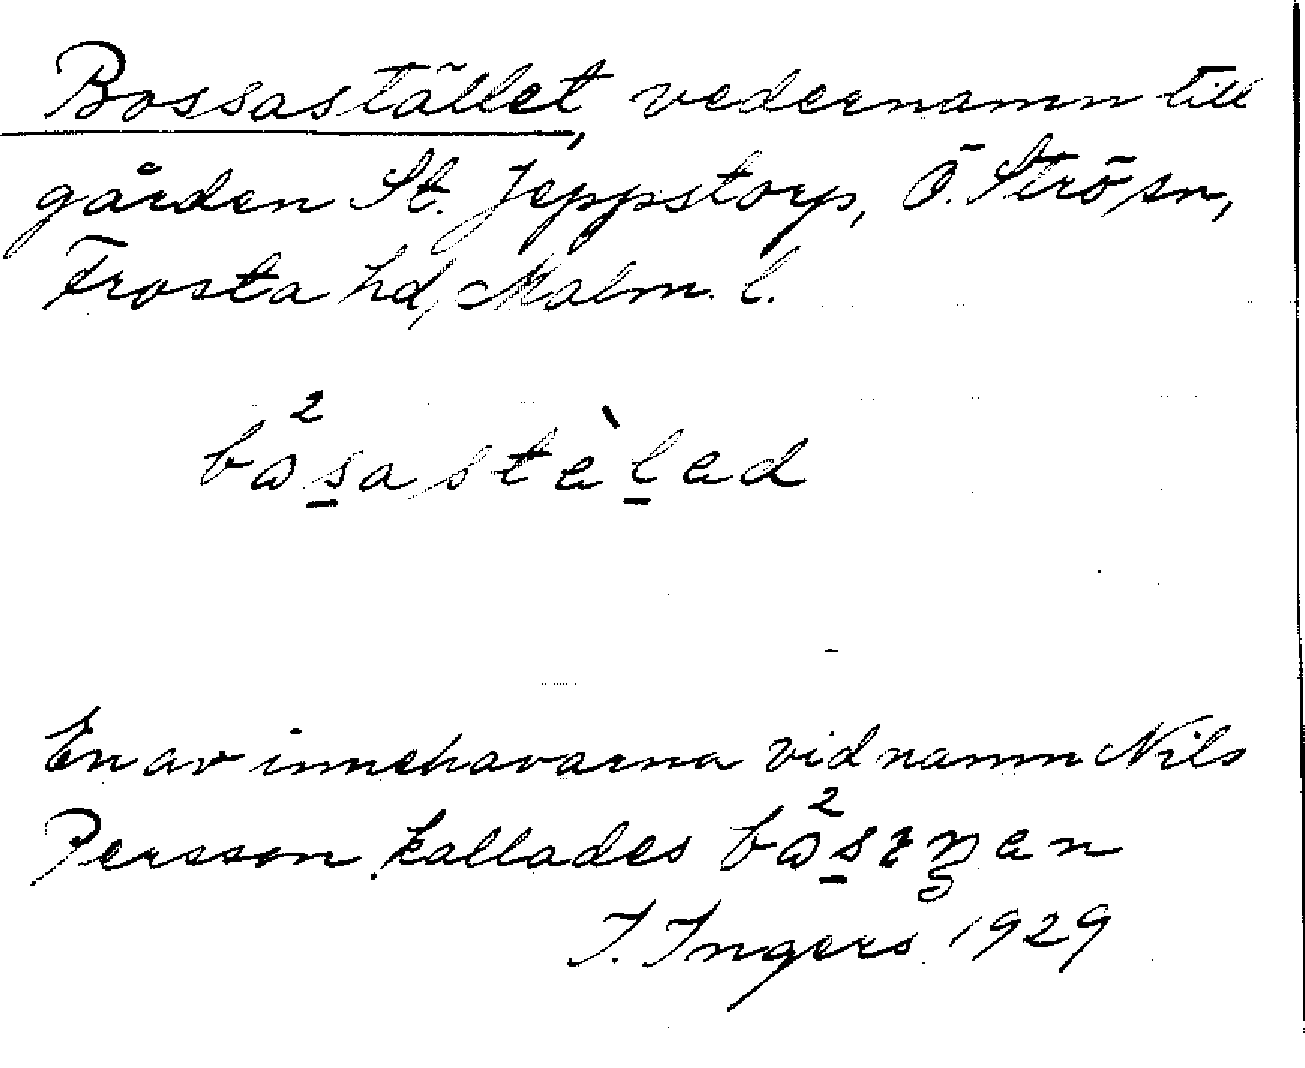 Bossastället, vedernamn till
gården St. Jeppstorp, Ö. Strö sn,
Frosta hd, Malm. l.
En av innehavarna vid namn Nils
Persson kallades
I. Ingers 1929